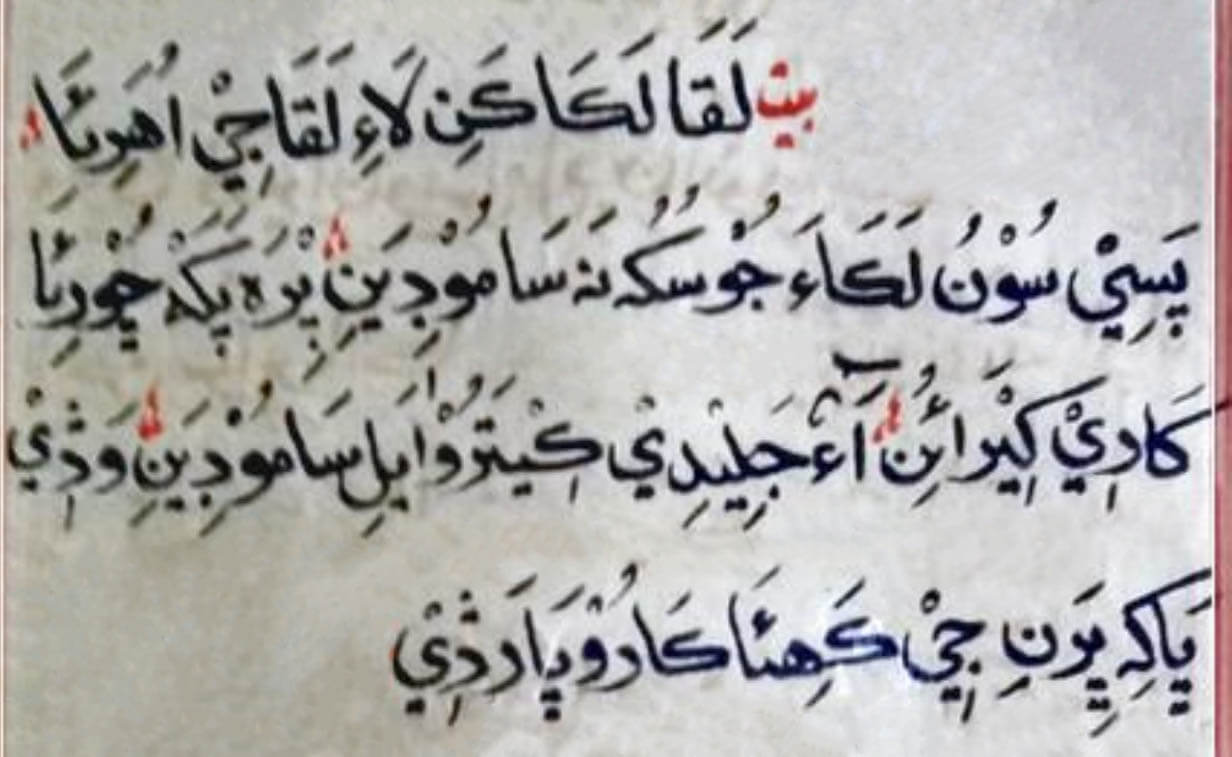 بيت لَقَا لَکَا کَنِ لَاءِ لَقَا جِيْ اُهَرِئَا
پَسِيْ سُوْنُ لَکَاءَ جُو سُکُه نَه سَامُوْدِيَنِ پِرَه پَکَهْ چُوْرِئَا
کَارِيْ کِيْرَائِنُ آءٌ جَلِيْدِيْ کِيْتَرُوْ اَيلِ سَامُوْدِيَنِ وَڎِيْ
پَاکِه پَرَنِ جِيْ کَهِئَا کَارُوْپَارَ ڎِيْ